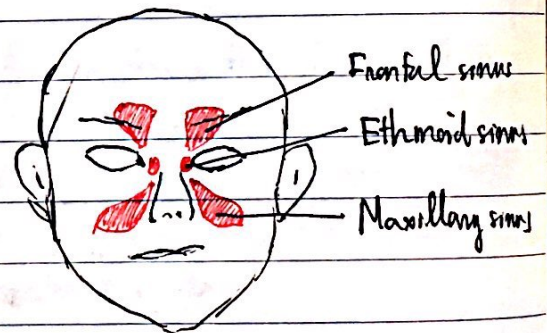 Frontal sinus
Ethmoid sinus
Maxillary sinus